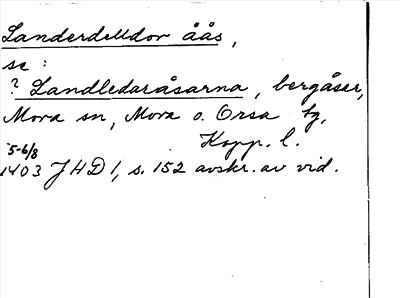 Landerdelldor åås,
se:
? Landledaråsarna, bergåsar,
Mora sn, Mora o. Orsa tg,
Kopp. l.
5-6/8
1403 JHD 1, s. 152 avskr. av vid.